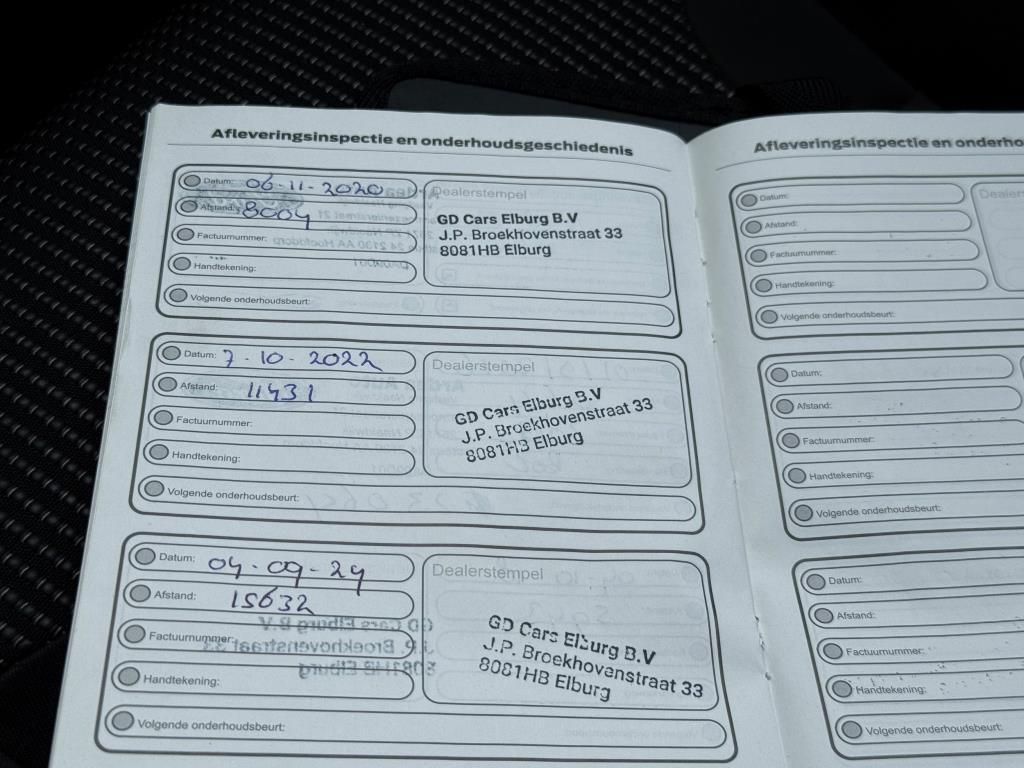 Afleveringsinspectie en onderhoudsgeschiedenis
Datum: 06-11-2020
Afstand: 8004
Factuurnummer:
Handtekening:
Volgende onderhoudsbeurt:
Dealerstempel
GD Cars Elburg B.V
J.P. Broekhovenstraat 33
8081HB Elburg
Datum: 7-10-2022
Afstand: 11431
Factuurnummer:
Handtekening:
Volgende onderhoudsbeurt:
Dealerstempel
GD Cars Elburg B.V
J.P. Broekhovenstraat 33
8081HB Elburg
Datum: 04-09-24
Afstand: 15632
Factuurnummer:
Handtekening:
Volgende onderhoudsbeurt:
Dealerstempel
GD Cars Elburg B.V
J.P. Broekhovenstraat 33
8081HB Elburg
Afleveringsinspectie en onderho
Datum:
Afstand:
Factuurnummer:
Handtekening:
Volgende onderhoudsbeurt:
Dealers
Datum:
Afstand:
Factuurnummer:
Handtekening:
Volgende onderhoudsbeurt:
Datum:
Afstand:
Factuurnummer:
Handtekening:
Volgende onderhoudsbeurt: